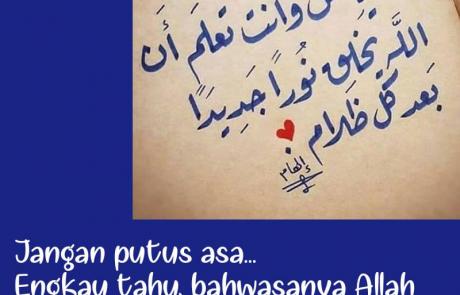 وأنت تعلم أن
الله يخلق نوراً جديدًا
بعد كل ظلام
إلهام
Jangan putus asa...
Engkau tahu, bahwasanya Allah